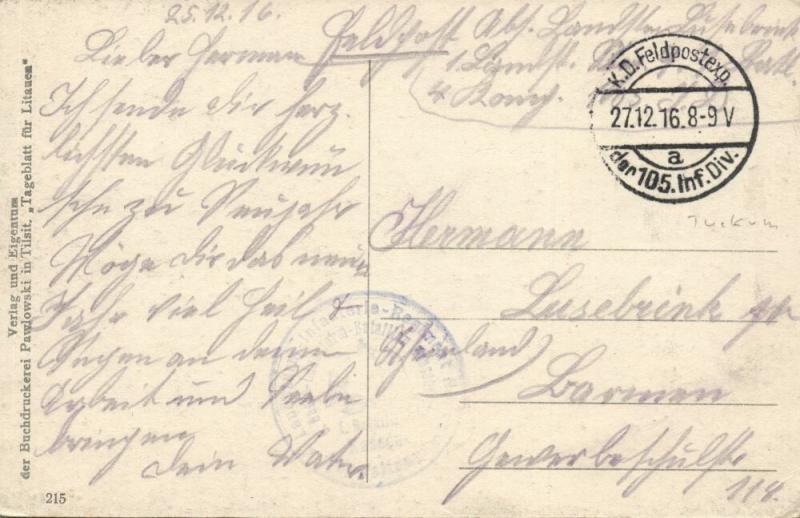 25.12.16.
Lieber Herman
Ich sende dir herz-
lichsten Glückwun
sche zu Neujahr
Möge dir das neue
Jahr viel Heil &
Segen an deine
Arbeit und Seele
bringen
dein Vater.
Feldpost Abs. Landstm. Lusebrink
1. Landst. Batl.
4 Komp.
K.D. Feldpostexp.
27.12.16.8-9V
a
der 105. Inf. Div.
Tuckum
Hermann
Lusebrink
Barmen
Gewerbeschulstr
114.
Verlag und Eigentum
der Buchdruckerei Pawlowski in Tilsit, „Tageblatt für Litauen"
215